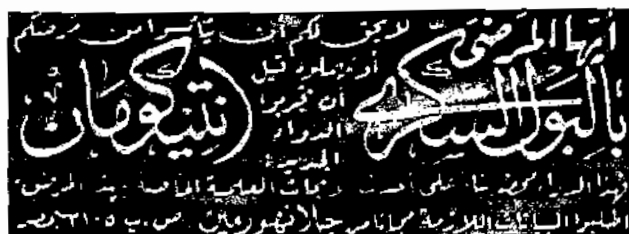 أيها المرضى
بالبول السكري
لا يحق لكم أن تيأسوا من مرضكم
أو تهملوه قبل
أن تجربوا
الدواء
الجديد
(انتيكومان)
فهذا الدواء محضر بناء على أحدث الخاصة بهذا المرض
اطلبوا البيانات اللازمة مجانا من جالانهورن ص.ب ٢١٠٥ مصر